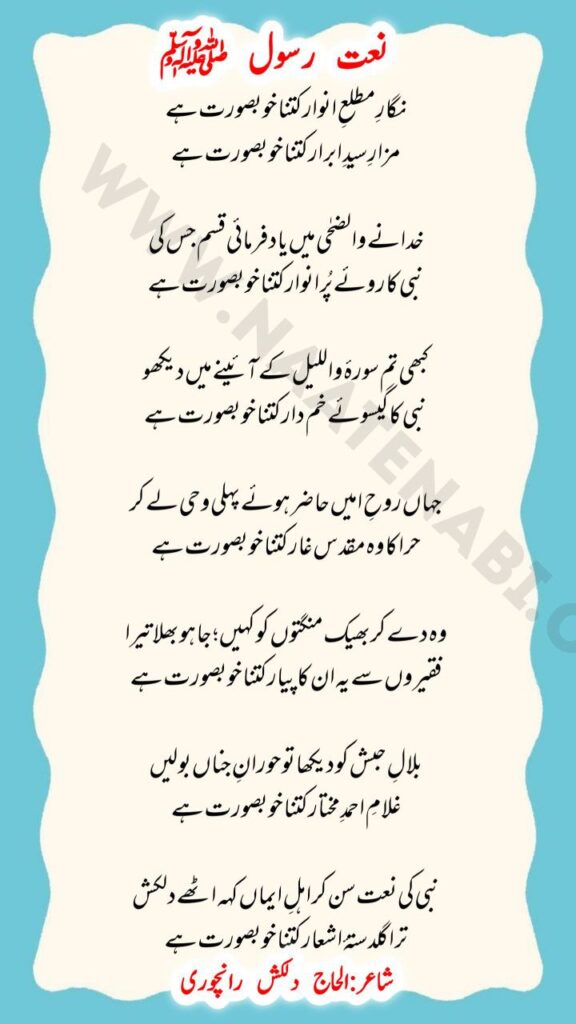 نعت رسول ﷺ
نگارِ مطلعِ انوار کتنا خوبصورت ہے
مزارِ سیدِ ابرار کتنا خوبصورت ہے
خدا نے والضحٰی میں یاد فرمائی قسم جس کی
نبی کا روئے پُر انوار کتنا خوبصورت ہے
کبھی تم سورۂ واللیل کے آئینے میں دیکھو
نبی کا گیسوئے خم دار کتنا خوبصورت ہے
جہاں روحِ امیں حاضر ہوئے پہلی وحی لے کر
حرا کا وہ مقدس غار کتنا خوبصورت ہے
وہ دے کر بھیک منگتوں کو کہیں؛ جا ہو بھلا تیرا
فقیروں سے یہ ان کا پیار کتنا خوبصورت ہے
بلالِ حبش کو دیکھا تو حورانِ جناں بولیں
غلامِ احمدِ مختار کتنا خوبصورت ہے
نبی کی نعت سن کر اہلِ ایماں کہہ اٹھے دلکش
ترا گلدستۂ اشعار کتنا خوبصورت ہے
شاعر:الحاج دلکش رانچوری
WWW.NAATENABI.CO